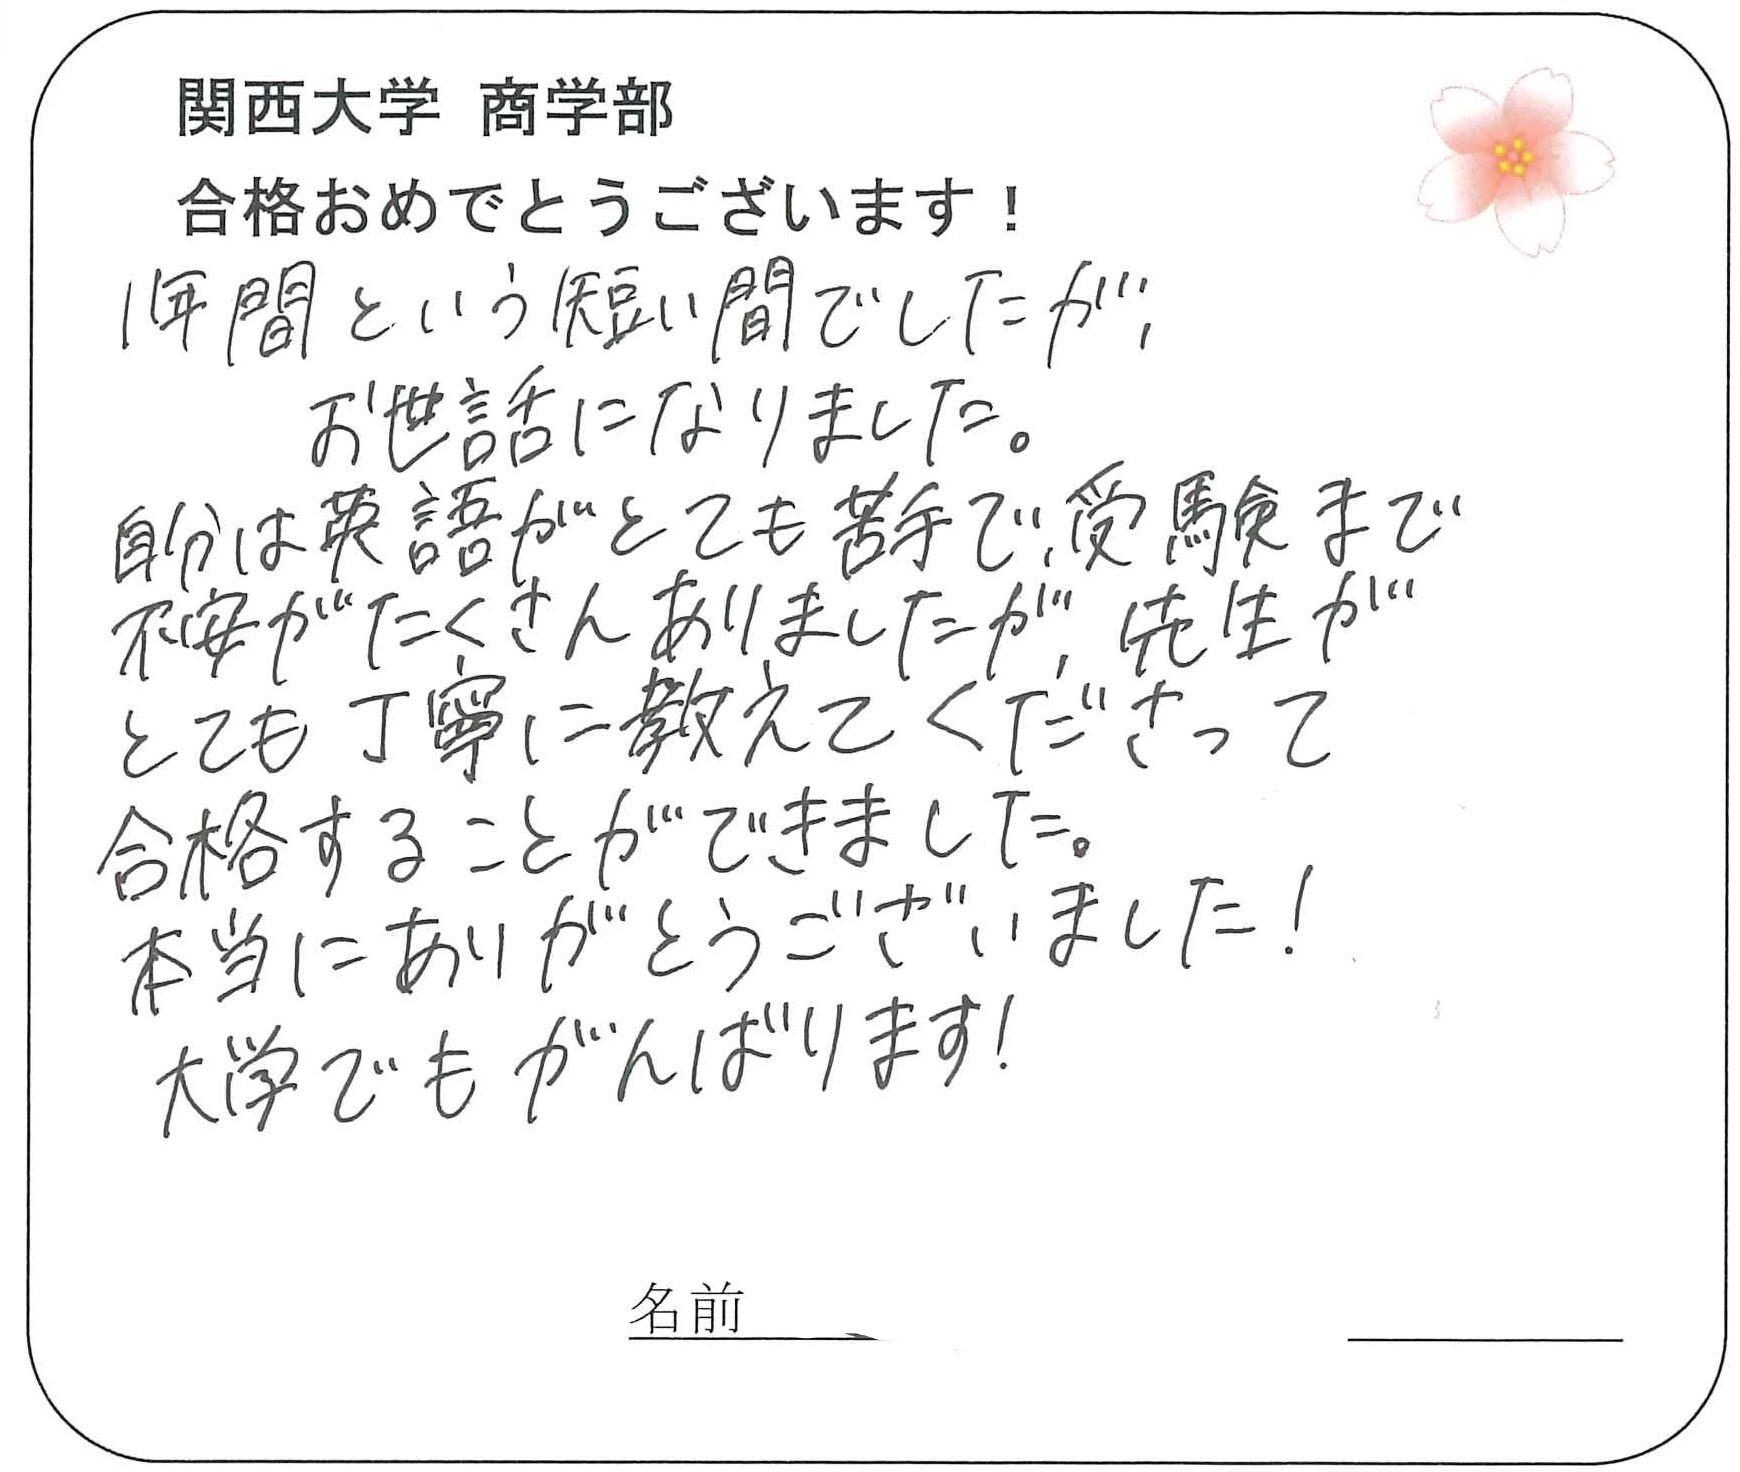 関西大学 商学部
合格おめでとうございます！
1年間という短い間でしたが、
お世話になりました。
自分は英語がとても苦手で、受験まで
不安がたくさんありましたが、先生が
とても丁寧に教えてくださって
合格することができました。
本当にありがとうございました！
大学でもがんばります！
名前